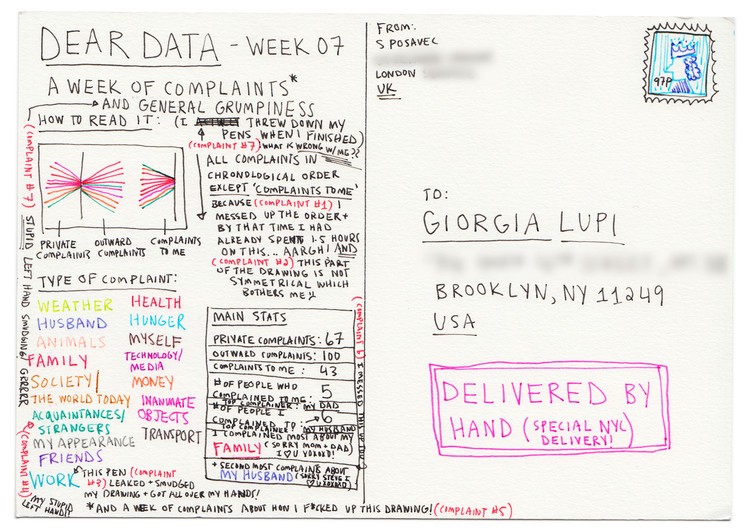 DEAR DATA - WEEK 07
A WEEK OF COMPLAINTS*
AND GENERAL GRUMPINESS
HOW TO READ IT: (I THREW DOWN MY
PENS WHEN I FINISHED)
(COMPLAINT #7) WHAT IS WRONG W/ME??
ALL COMPLAINTS IN
CHRONOLOGICAL ORDER
EXCEPT 'COMPLAINTS TO ME'
BECAUSE (COMPLAINT #1) I
MESSED UP THE ORDER +
BY THAT TIME I HAD
ALREADY SPENT 1.5 HOURS
ON THIS... AARGH! AND
(COMPLAINT #2) THIS PART
OF THE DRAWING IS NOT
SYMMETRICAL WHICH
BOTHERS ME
PRIVATE
COMPLAINTS
OUTWARD
COMPLAINTS
COMPLAINTS
TO ME
TYPE OF COMPLAINT:
WEATHER
HUSBAND
ANIMALS
FAMILY
SOCIETY/
THE WORLD TODAY
ACQUAINTANCES/
STRANGERS
MY APPEARANCE
FRIENDS
WORK
HEALTH
HUNGER
MYSELF
TECHNOLOGY/
MEDIA
MONEY
INANIMATE
OBJECTS
TRANSPORT
THIS PEN (COMPLAINT
#3) LEAKED + SMUDGED
MY DRAWING + GOT ALL OVER MY HANDS!
MAIN STATS
PRIVATE COMPLAINTS: 67
OUTWARD COMPLAINTS: 100
COMPLAINTS TO ME: 43
# OF PEOPLE WHO
COMPLAINED TO ME: 5
TOP COMPLAINER: MY DAD
# OF PEOPLE I
COMPLAINED TO: 6
TOP COMPLAINER: MY HUSBAND
I COMPLAINED MOST ABOUT MY
FAMILY (SORRY MOM + DAD)
I ♡ U XOXOXO!
+ SECOND MOST COMPLAINTS ABOUT
MY HUSBAND (SORRY STEVE I
♡ U XOXOXO)
(COMPLAINT #6) I MESSED THIS UP TOO
(COMPLAINT #7) STUPID LEFT HAND SMUDGING! GRRRER
(COMPLAINT #4)
(MY STUPID
LEFT HAND!!
*AND A WEEK OF COMPLAINTS ABOUT HOW I F*CKED UP THIS DRAWING! (COMPLAINT #5)
FROM:
S POSAVEC
LONDON
UK
97P
TO:
GIORGIA LUPI
BROOKLYN, NY 11249
USA
DELIVERED BY
HAND (SPECIAL NYC
DELIVERY!